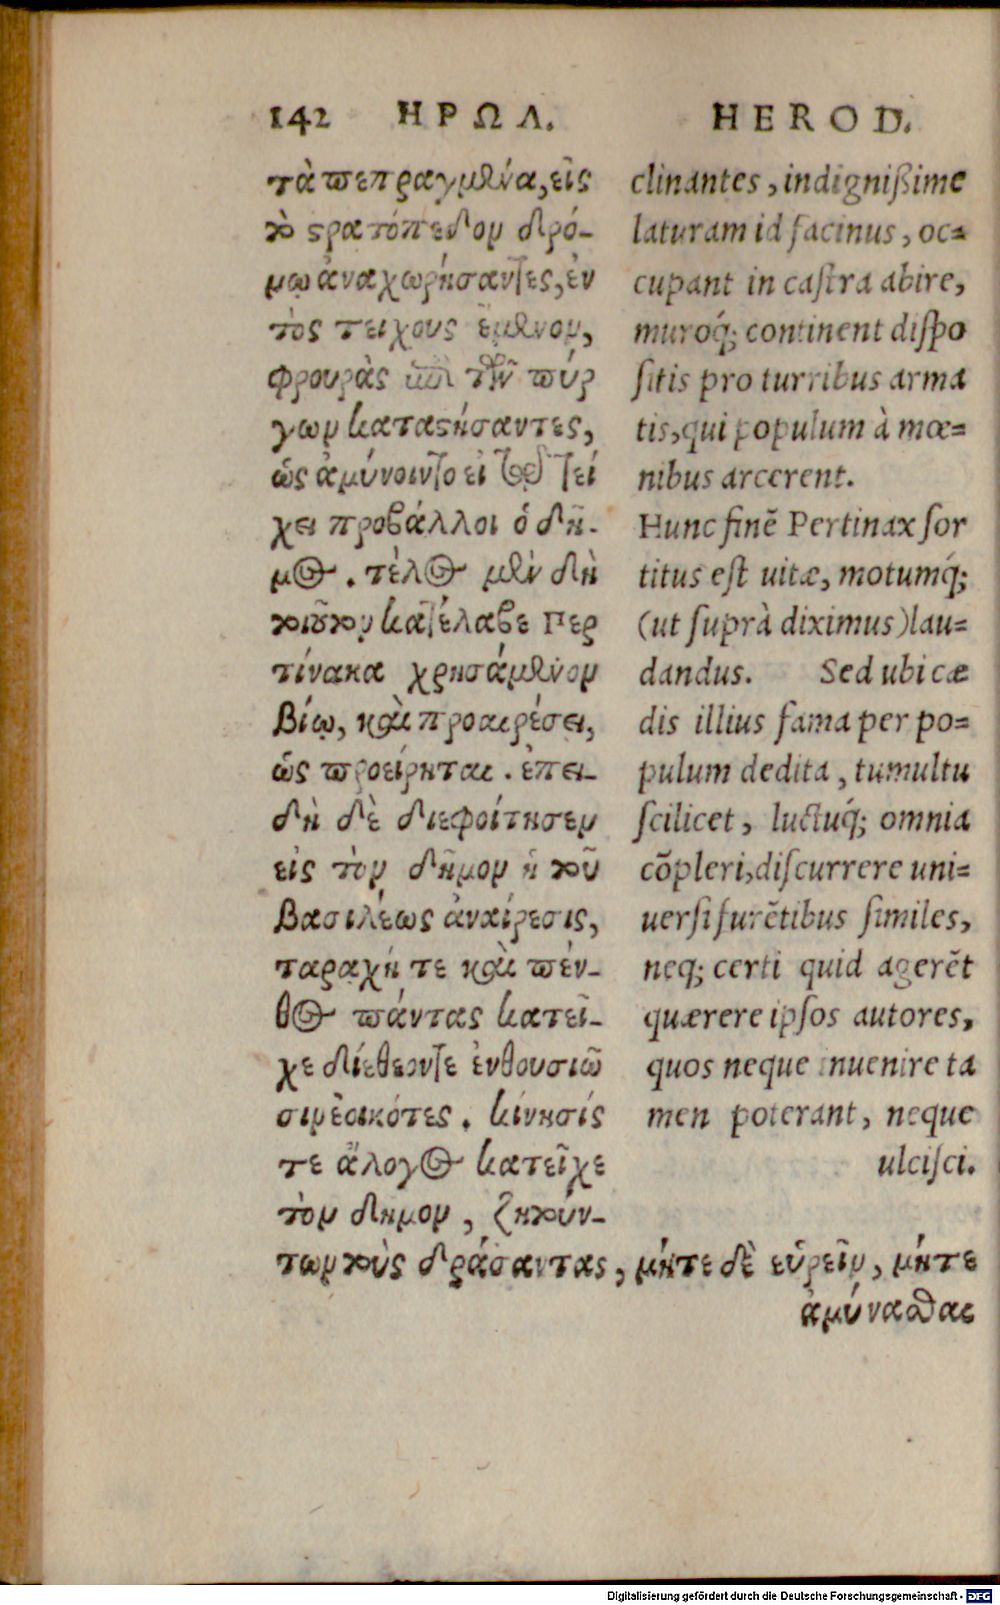 142 ΗΡΩΔ.
τὰ πεπραγμένα, εἰς
τὸ στρατόπεδον δρό-
μῳ ἀναχωρήσαντες, ἐν
τὸς τείχους ἔμενον,
φρουρὰς ἐπὶ τῶν πύρ
γων καταστήσαντες,
ὡς ἀμύνοιντο εἰ τῷ τεί
χει προβάλλοι ὁ δῆ-
μος. τέλος μὲν δὴ
τοιοῦτον κατέλαβε Περ
τίνακα χρησάμενον
βίῳ, καὶ προαιρέσει,
ὡς προείρηται. ἐπει-
δὴ δὲ διεφοίτησεν
εἰς τὸν δῆμον ἡ τοῦ
βασιλέως ἀναίρεσις,
ταραχή τε καὶ πέν-
θος πάντας κατεῖ-
χε διέθεόντε ἐνθουσιῶ
σιν ἐοικότες. κίνησίς
τε ἄλογος κατεῖχε
τὸν δημον, ζητούν-
των τοὺς δράσαντας, μήτε δὲ εὑρεῖν, μήτε
ἀμύνασθαι
HEROD.
clinantes, indignißime
laturam id facinus, oc=
cupant in caſtra abire,
muroq́; continent diſpo
ſitis pro turribus arma
tis, qui populum à mœ=
nibus arcerent.
Hunc finẽ Pertinax ſor
titus eſt uitæ, motumq́;
(ut ſuprà diximus) lau=
dandus. Sed ubi cæ
dis illius fama per po=
pulum dedita, tumultu
ſcilicet, luctuq́; omnia
cõpleri, diſcurrere uni=
uerſi furẽtibus ſimiles,
neq; certi quid agerẽt
quærere ipſos autores,
quos neque inuenire ta
men poterant, neque
ulciſci.
Digitalisierung gefördert durch die Deutsche Forschungsgemeinschaft - DFG